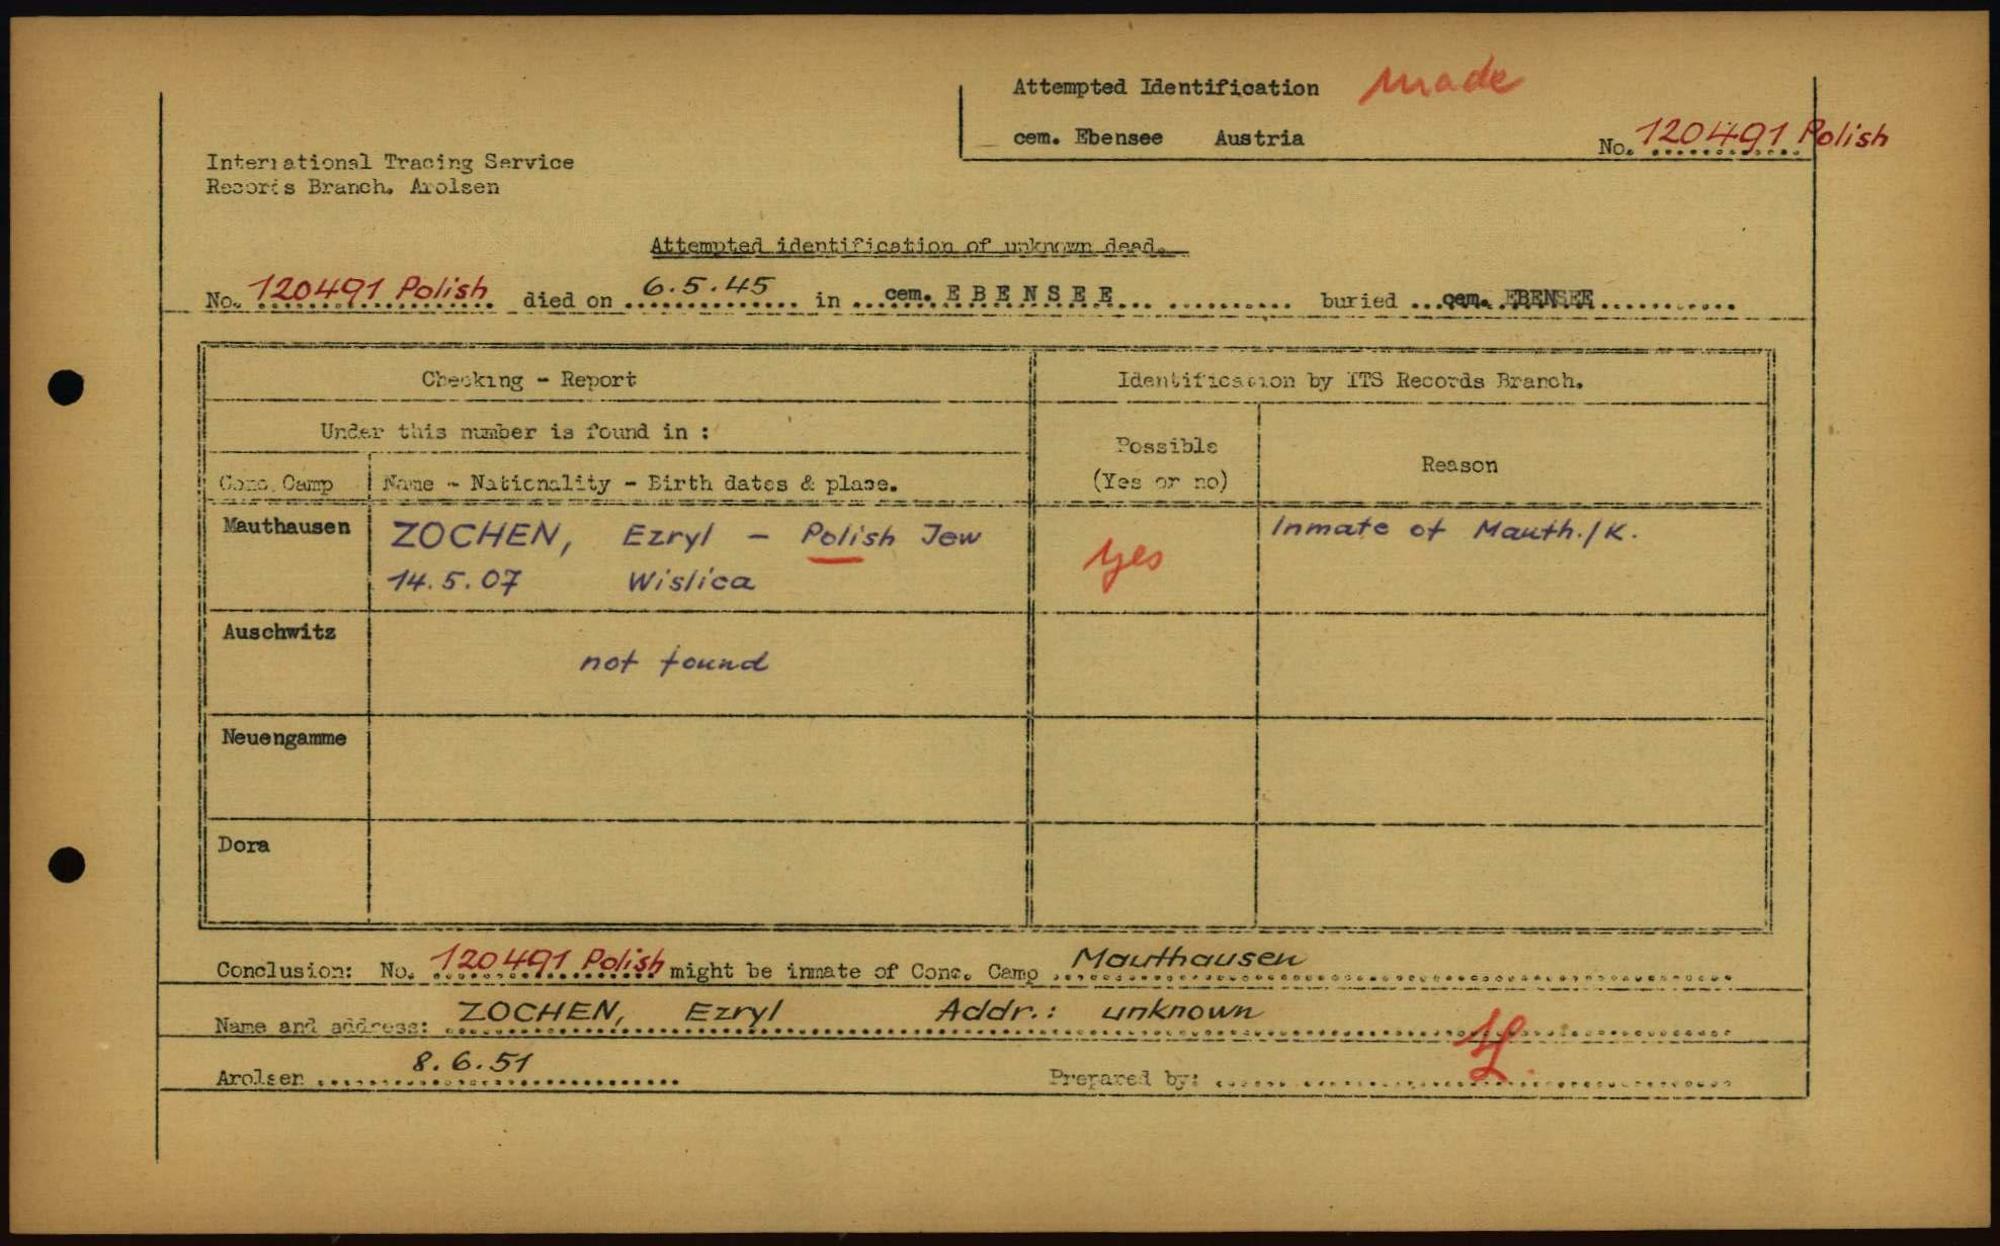 Attempted Identification made
cem. Ebensee Austria
No. 120491 Polish
International Tracing Service
Records Branch. Arolsen
Attempted identification of unknown dead.
No. 120491 Polish died on 6.5.45 in cem. EBENSEE buried cem. EBENSEE
Checking - Report
Identification by ITS Records Branch.
Under this number is found in :
Possible
(Yes or no)
Reason
Conc. Camp
Name - Nationality - Birth dates & place.
Mauthausen
ZOCHEN, Ezryl - Polish Jew
14.5.07 Wislica
yes
Inmate of Mauth./K.
Auschwitz
not found
Neuengamme
Dora
Conclusion: No. 120491 Polish might be inmate of Conc. Camp Mauthausen
Name and address: ZOCHEN, Ezryl Addr.: unknown
Arolsen 8.6.51
Prepared by: